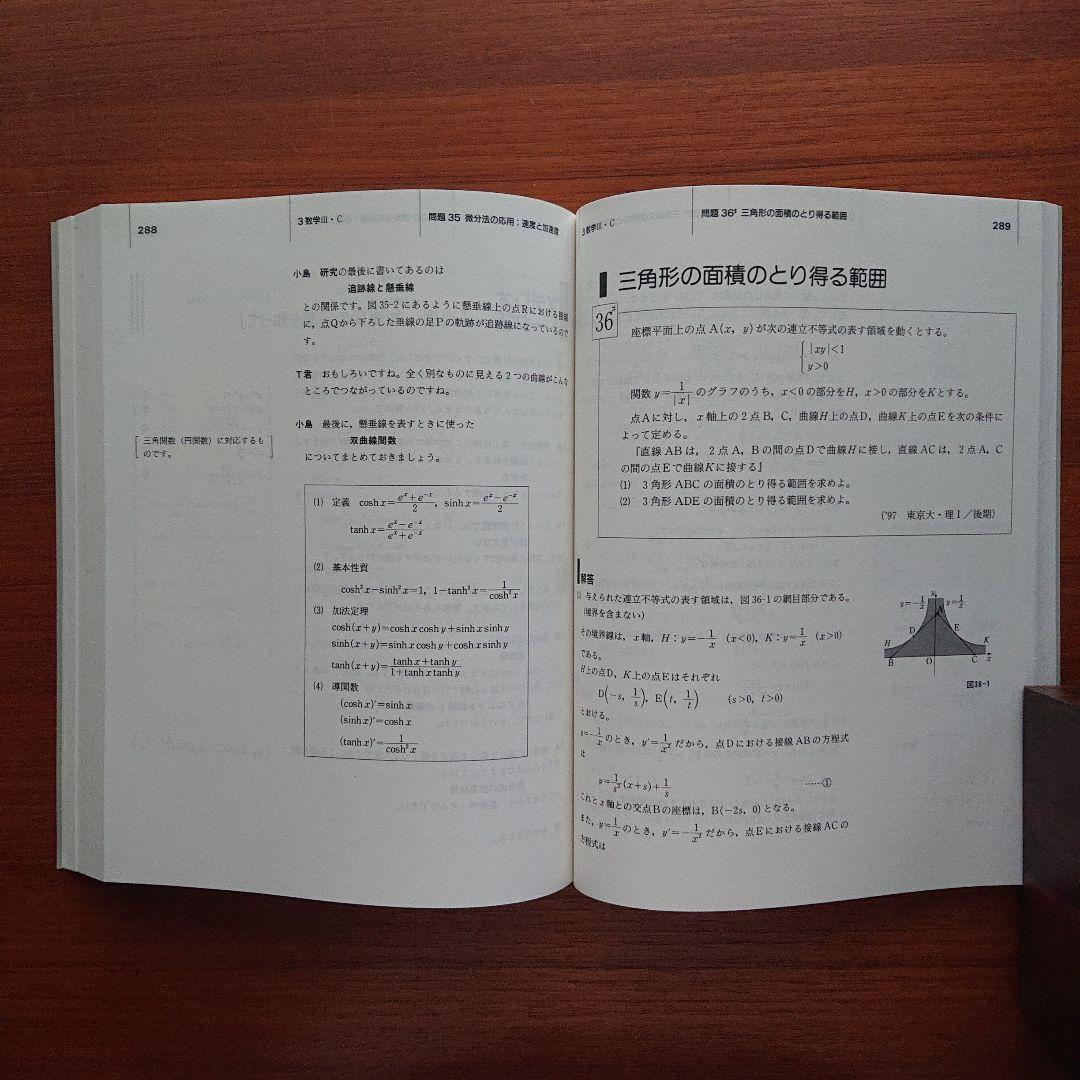 288
3 数学III・C
問題 35 微分法の応用：速度と加速度
小島 研究の最後に書いてあるのは
追跡線と懸垂線
との関係です。図 35-2 にあるように懸垂線上の点Rにおける接線
に，点Qから下ろした垂線の足Pの軌跡が追跡線になっているので
す。
T君 おもしろいですね。全く別なものに見える2つの曲線がこんな
ところでつながっているのですね。
小島 最後に，懸垂線を表すときに使った
双曲線関数
についてまとめておきましょう。
三角関数（円関数）に対応するも
のです。
(1) 定義 cosh x = (e^x + e^{-x})/2, sinh x = (e^x − e^{-x})/2
tanh x = (e^x − e^{-x})/(e^x + e^{-x})
(2) 基本性質
cosh²x − sinh²x = 1, 1 − tanh²x = 1/cosh²x
(3) 加法定理
cosh(x+y) = cosh x cosh y + sinh x sinh y
sinh(x+y) = sinh x cosh y + cosh x sinh y
tanh(x+y) = (tanh x + tanh y)/(1 + tanh x tanh y)
(4) 導関数
(cosh x)′ = sinh x
(sinh x)′ = cosh x
(tanh x)′ = 1/cosh²x
3 数学III・C
問題 36 三角形の面積のとり得る範囲
289
三角形の面積のとり得る範囲
36
座標平面上の点 A(x, y) が次の連立不等式の表す領域を動くとする。
|xy|<1
y>0
関数 y=1/|x| のグラフのうち，x<0 の部分をH，x>0 の部分をKとする。
点Aに対し，x 軸上の2点 B，C，曲線H上の点D，曲線K上の点Eを次の条件に
よって定める。
『直線 AB は，2点 A，B の間の点Dで曲線Hに接し，直線 AC は，2点 A，C
の間の点Eで曲線Kに接する』
(1) 3角形 ABC の面積のとり得る範囲を求めよ。
(2) 3角形 ADE の面積のとり得る範囲を求めよ。
('97 東京大・理I／後期)
解答
与えられた連立不等式の表す領域は，図 36-1 の網目部分である。
(境界を含まない)
その境界線は，x 軸，H：y=−1/x (x<0)，K：y=1/x (x>0)
である。
H上の点D，K上の点Eはそれぞれ
D(−s, 1/s), E(t, 1/t) (s>0, t>0)
とおける。
y=−1/x のとき，y′=1/x² だから，点Dにおける接線 AB の方程式
は
y=1/s²(x+s)+1/s ……①
これと x 軸との交点Bの座標は，B(−2s, 0)となる。
また，y=1/x のとき，y′=−1/x² だから，点Eにおける接線 AC の
方程式は
y
A
D
E
H
K
B
O
C
x
図36-1